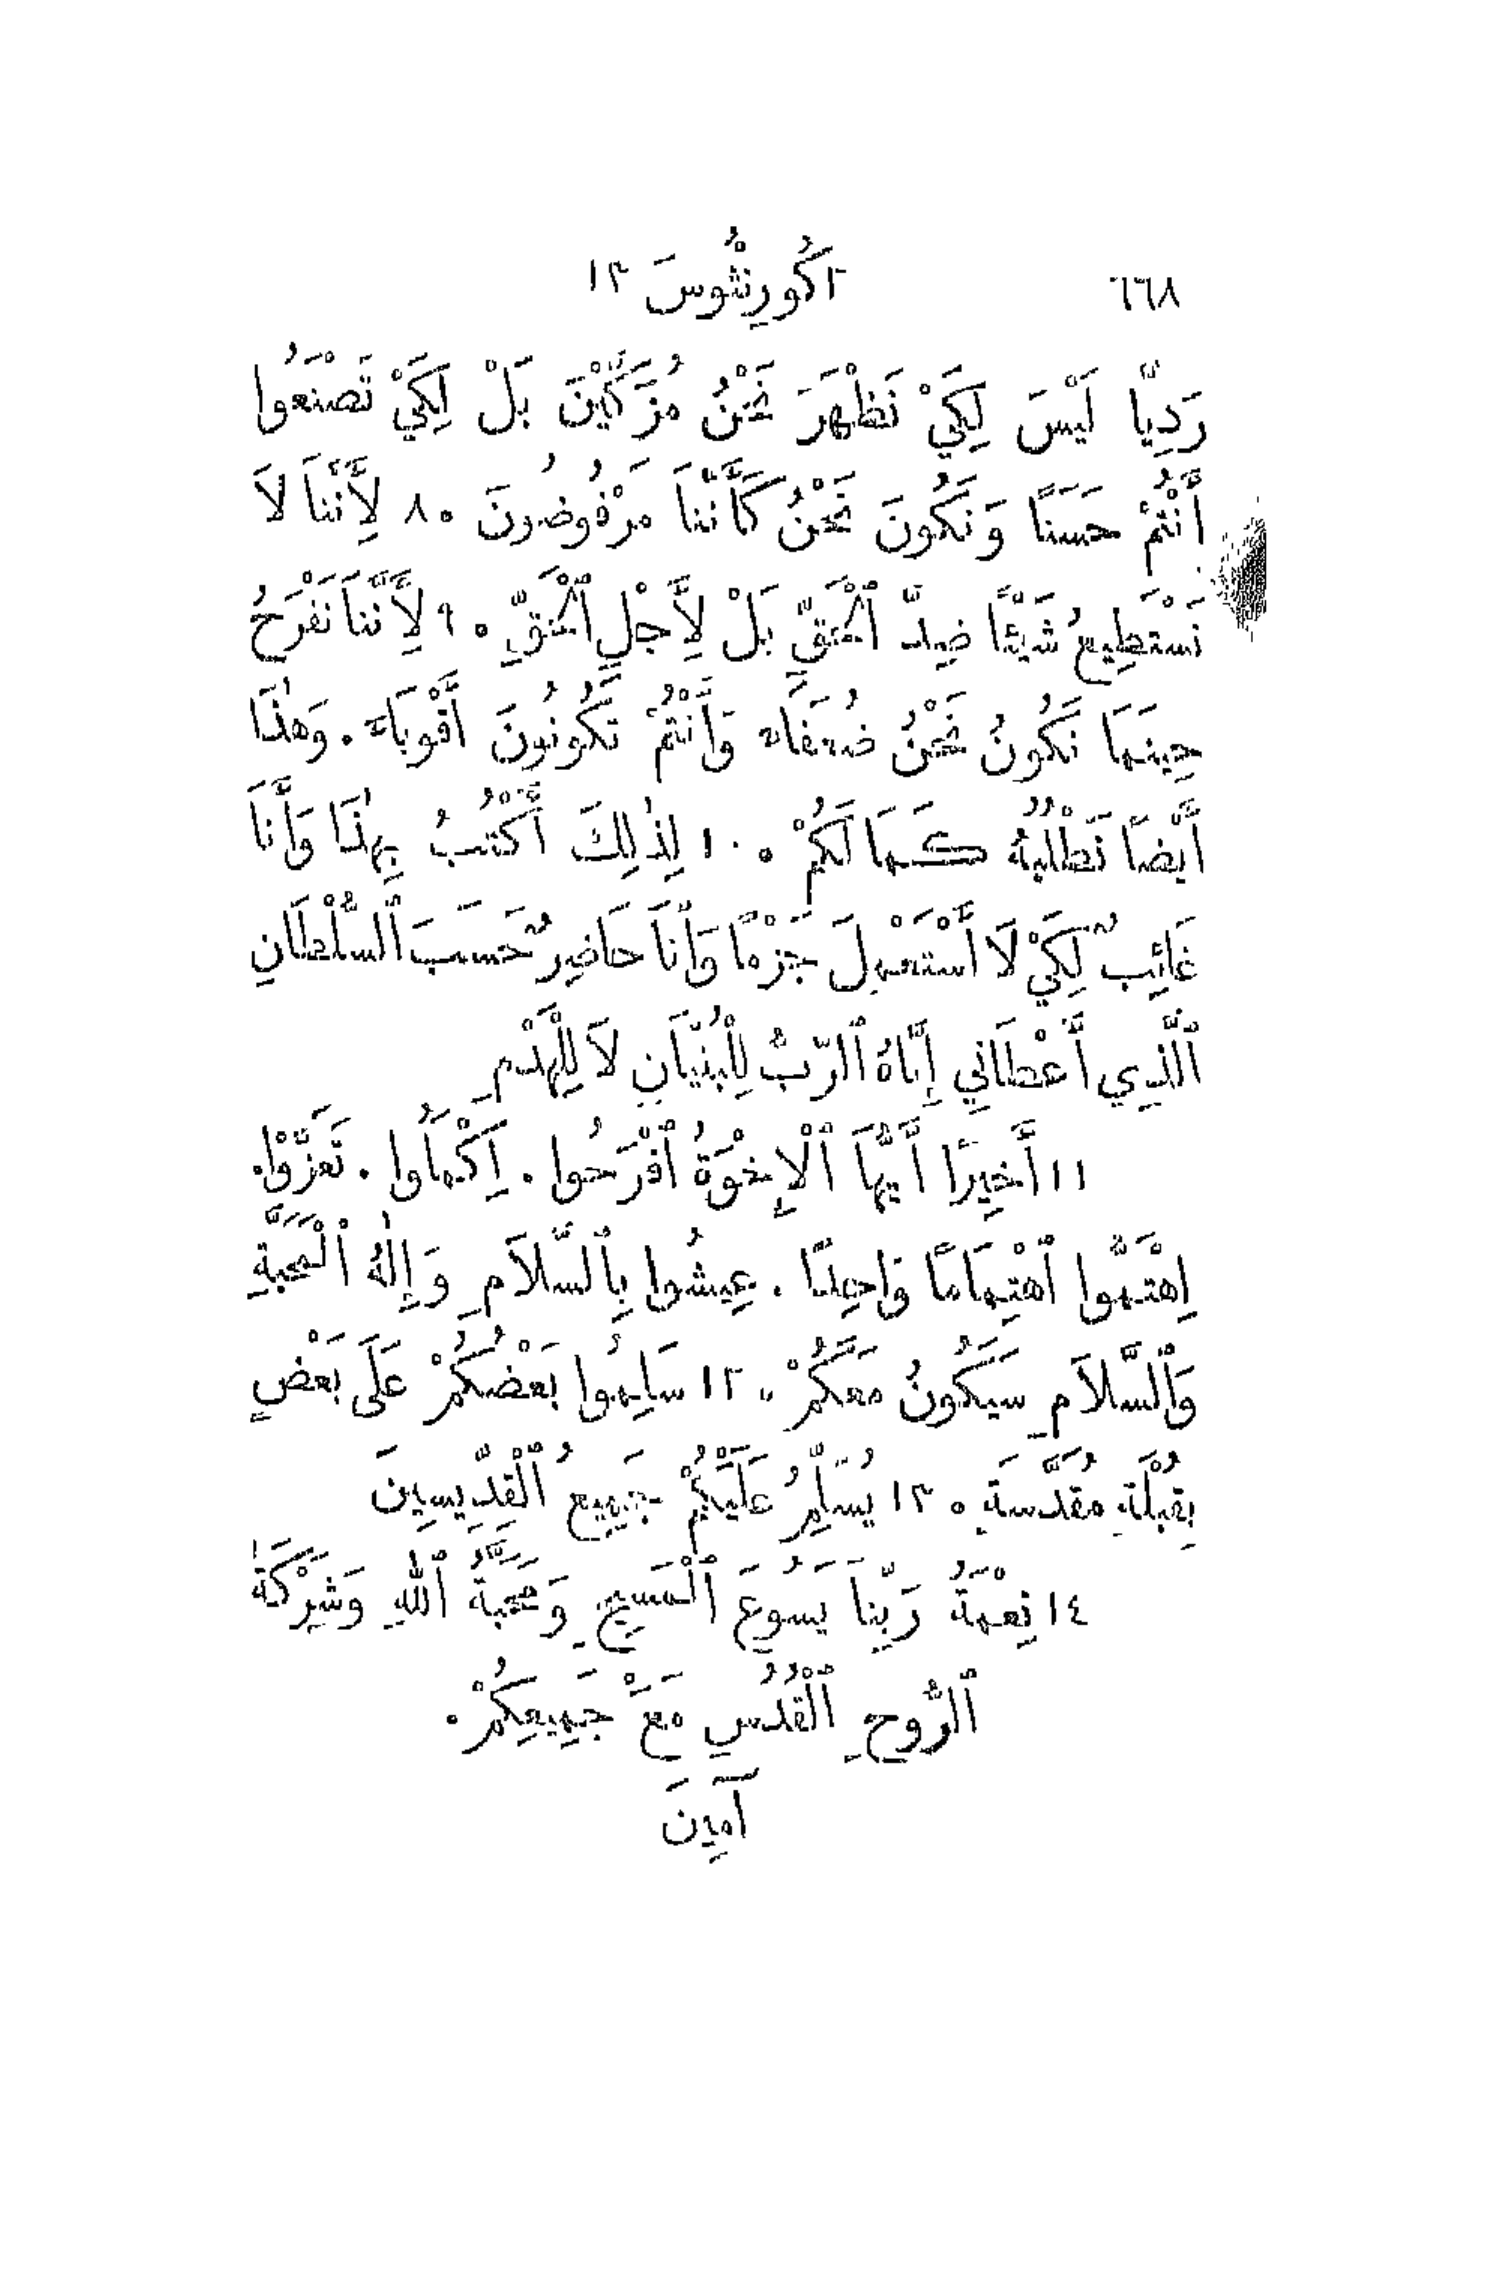 ٦٦٨ ٢كُورِنْثُوسَ ١٣
رَدِيًّا لَيْسَ لِكَيْ نَظْهَرَ نَحْنُ مُزَكَّيْنَ بَلْ لِكَيْ تَصْنَعُوا
أَنْتُمْ حَسَنًا وَنَكُونَ نَحْنُ كَأَنَّنَا مَرْفُوضُونَ ٠ ٨ لِأَنَّنَا لَا
نَسْتَطِيعُ شَيْئًا ضِدَّ ٱلْحَقِّ بَلْ لِأَجْلِ ٱلْحَقِّ ٠ ٩ لِأَنَّنَا نَفْرَحُ
حِينَمَا نَكُونُ نَحْنُ ضُعَفَاءَ وَأَنْتُمْ تَكُونُونَ أَقْوِيَاءَ . وَهٰذَا
أَيْضًا نَطْلُبُهُ كَمَالَكُمْ ٠ ١٠ لِذٰلِكَ أَكْتُبُ بِهٰذَا وَأَنَا
غَائِبٌ لِكَيْ لَا أَسْتَعْمِلَ جَزْمًا وَأَنَا حَاضِرٌ حَسَبَ ٱلسُّلْطَانِ
ٱلَّذِي أَعْطَانِي إِيَّاهُ ٱلرَّبُّ لِلْبُنْيَانِ لَا لِلْهَدْمِ
١١ أَخِيرًا أَيُّهَا ٱلْإِخْوَةُ ٱفْرَحُوا . اِكْمَلُوا . تَعَزَّوْا.
اِهْتَمُّوا ٱهْتِمَامًا وَاحِدًا . عِيشُوا بِٱلسَّلَامِ وَإِلٰهُ ٱلْمَحَبَّةِ
وَٱلسَّلَامِ سَيَكُونُ مَعَكُمْ ٠ ١٢ سَلِّمُوا بَعْضُكُمْ عَلَى بَعْضٍ
بِقُبْلَةٍ مُقَدَّسَةٍ ٠ ١٣ يُسَلِّمُ عَلَيْكُمْ جَمِيعُ ٱلْقِدِّيسِينَ
١٤ نِعْمَةُ رَبِّنَا يَسُوعَ ٱلْمَسِيحِ وَمَحَبَّةُ ٱللهِ وَشَرِكَةُ
ٱلرُّوحِ ٱلْقُدُسِ مَعَ جَمِيعِكُمْ.
آمِينَ